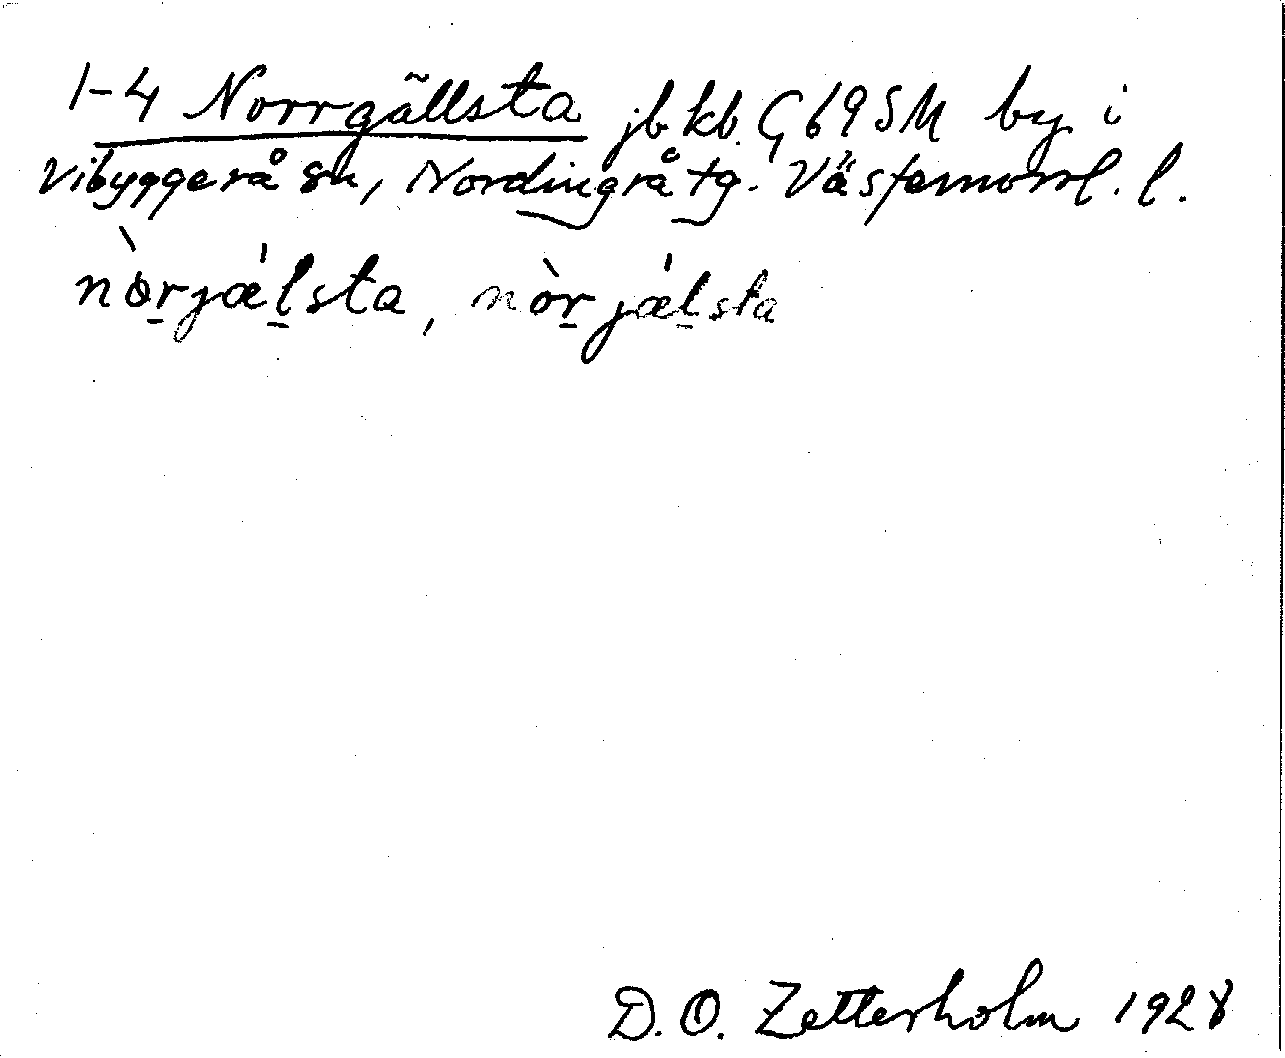 1-4 Norrgällsta jb. kb. G 69 SM by i
Vibyggerå sn, Nordingrå tg. Västernorrl. l.
nòrjǽlsta, nòrjǽlsta
D. O. Zetterholm 1928